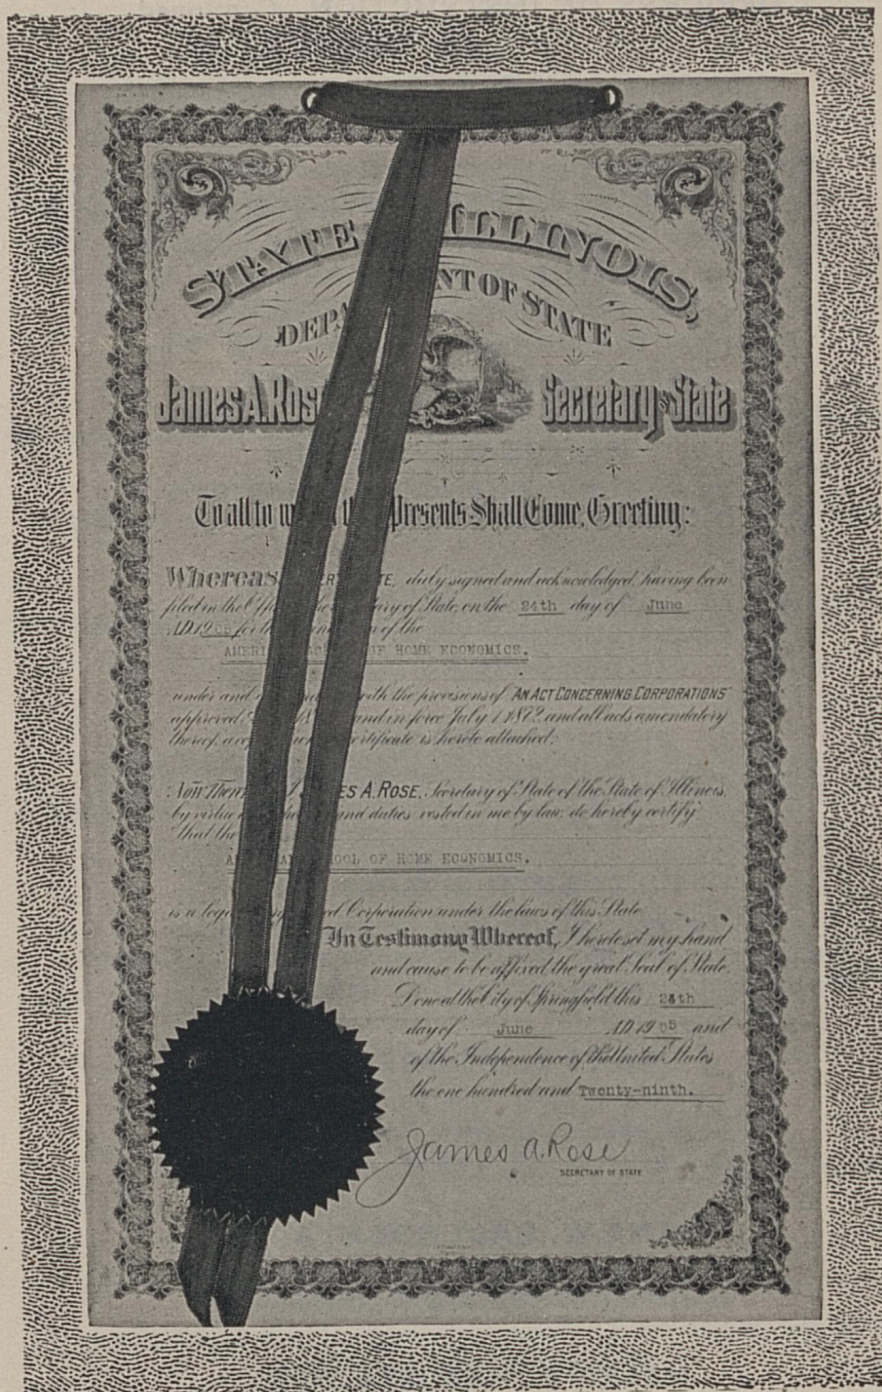 STATE ILLINOIS,
DEPA NT OF STATE
James A. Ros Secretary of State
To all to w th Presents Shall Come, Greeting:
Whereas, ER TE, duly signed and acknowledged, having been
filed in the Off he ary of State, on the 24th day of June
A.D. 19 05 for th on of the
AMERI SC OF HOME ECONOMICS.
under and with the provisions of "AN ACT CONCERNING CORPORATIONS"
approved, 18 and in force July 1, 1872, and all acts amendatory
thereof, a co certificate is hereto attached;
Now Ther I ES A. ROSE, Secretary of State of the State of Illinois,
by virtue and duties vested in me by law, do hereby certify
that the
A AN OOL OF HOME ECONOMICS.
is a lega ed Corporation under the laws of this State.
In Testimony Whereof, I hereto set my hand
and cause to be affixed the great Seal of State.
Done at the City of Springfield this 24th
day of June A.D. 19 05 and
of the Independence of the United States
the one hundred and Twenty-ninth.
James A. Rose
SECRETARY OF STATE